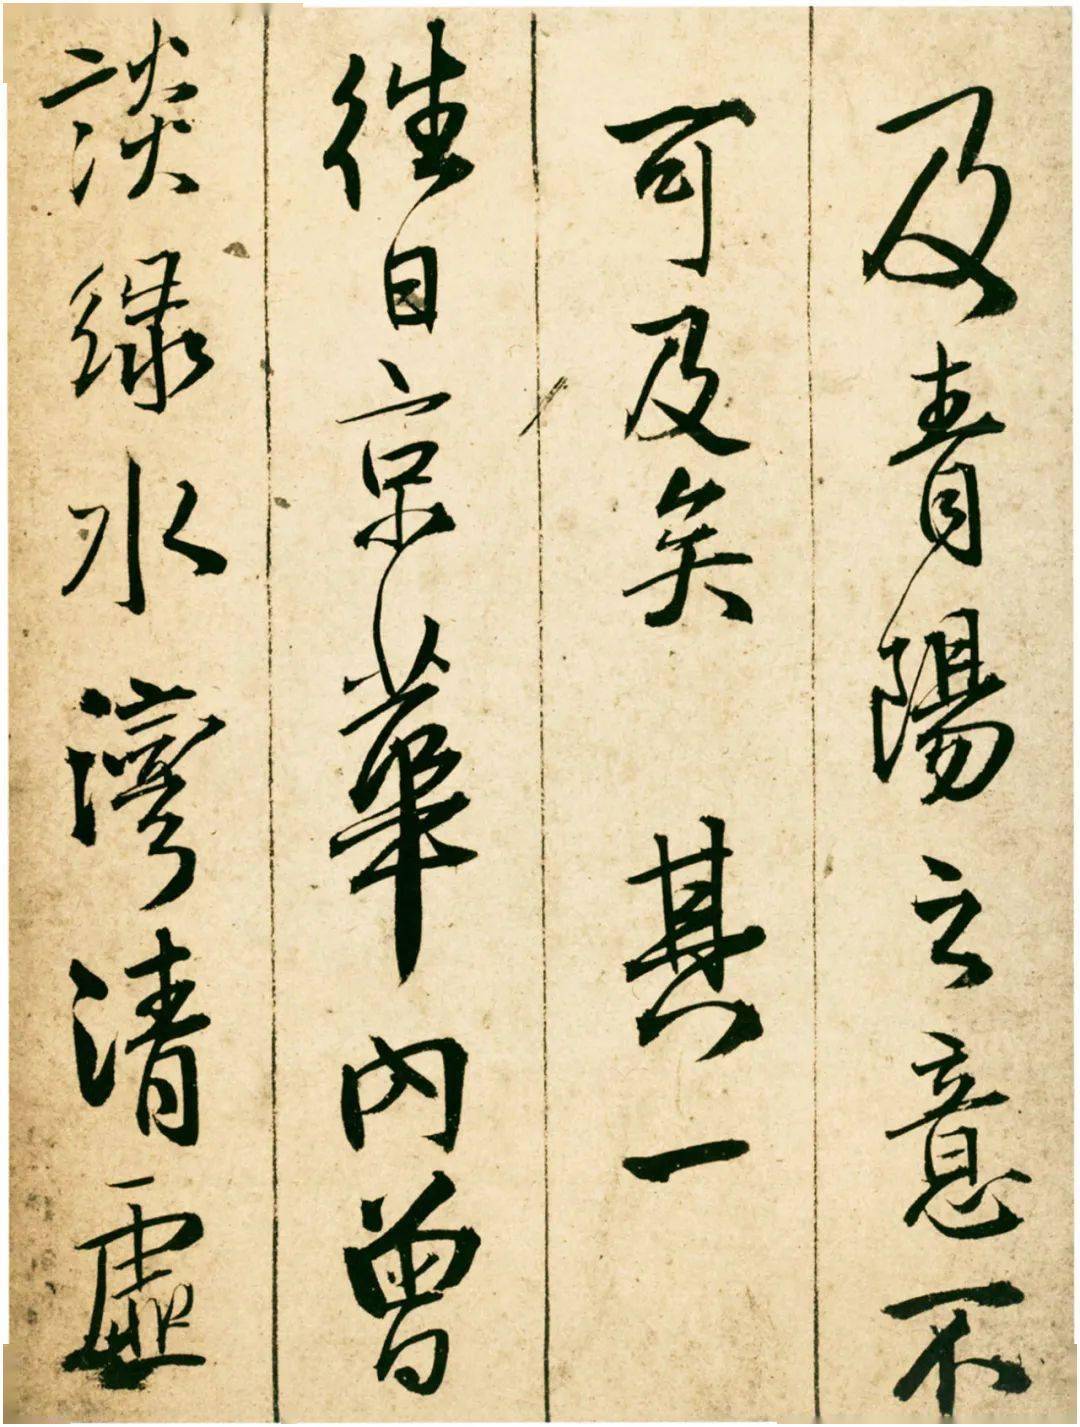 及青陽之意不
可及矣 其一
往日京華内曾
談緑水灣清虛